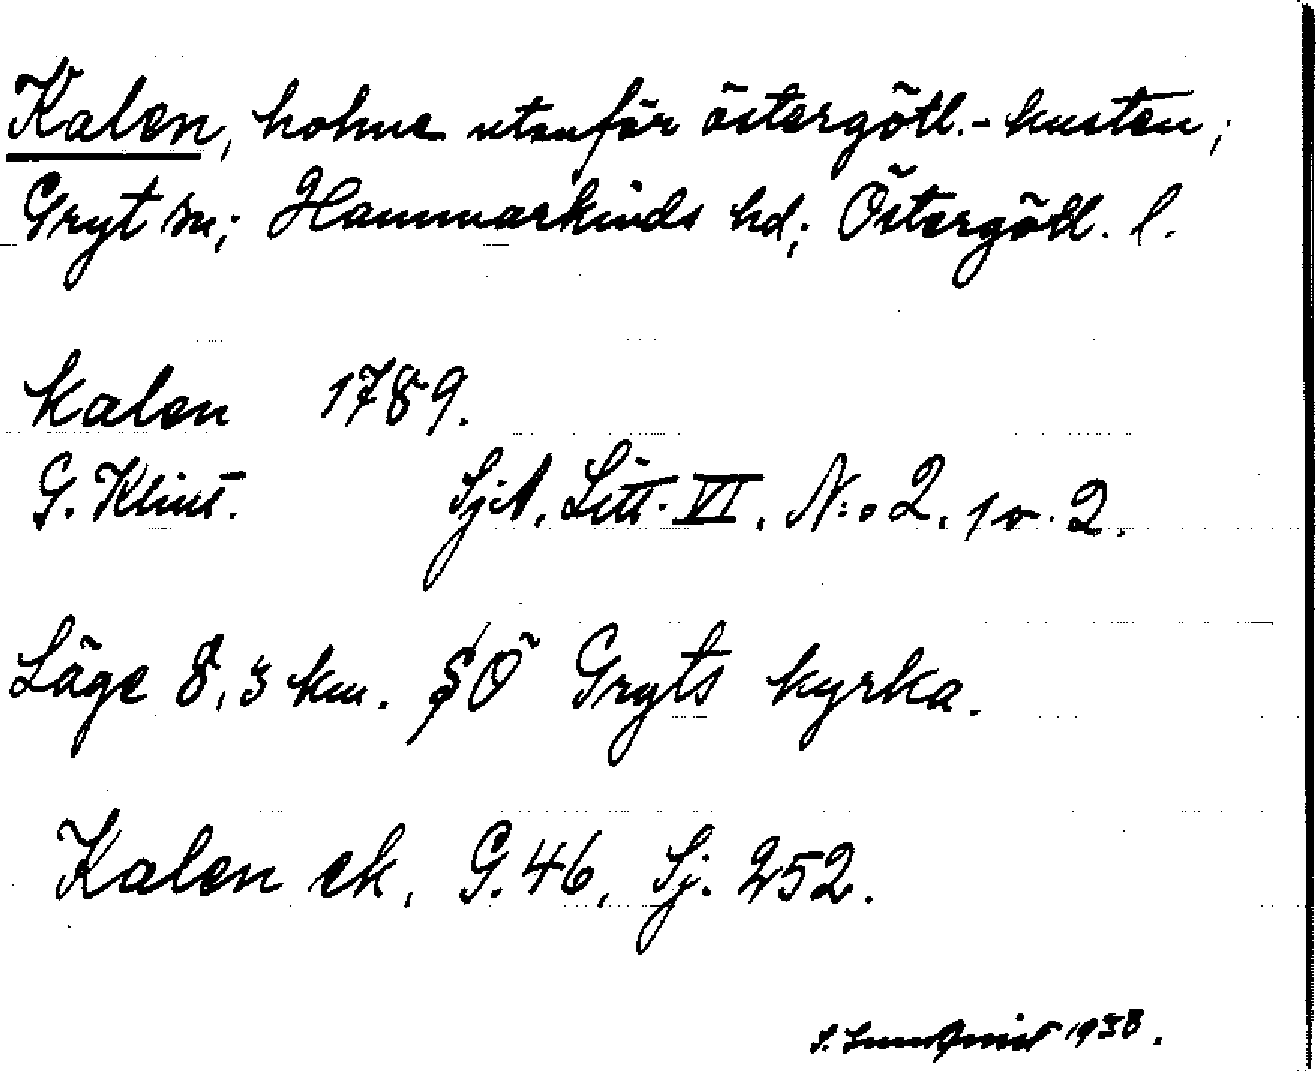 Kalen, holme utanför östergötl.-kusten;
Gryt sn; Hammarkinds hd; Östergötl. l.
Kalen 1789.
G. Klint. SjA. Litt. VI. N:o 2. 1 o. 2.
Läge 8,3 km. SÖ Gryts kyrka.
Kalen ek. G. 46, Sj. 252.
S. Lundqvist 1938.